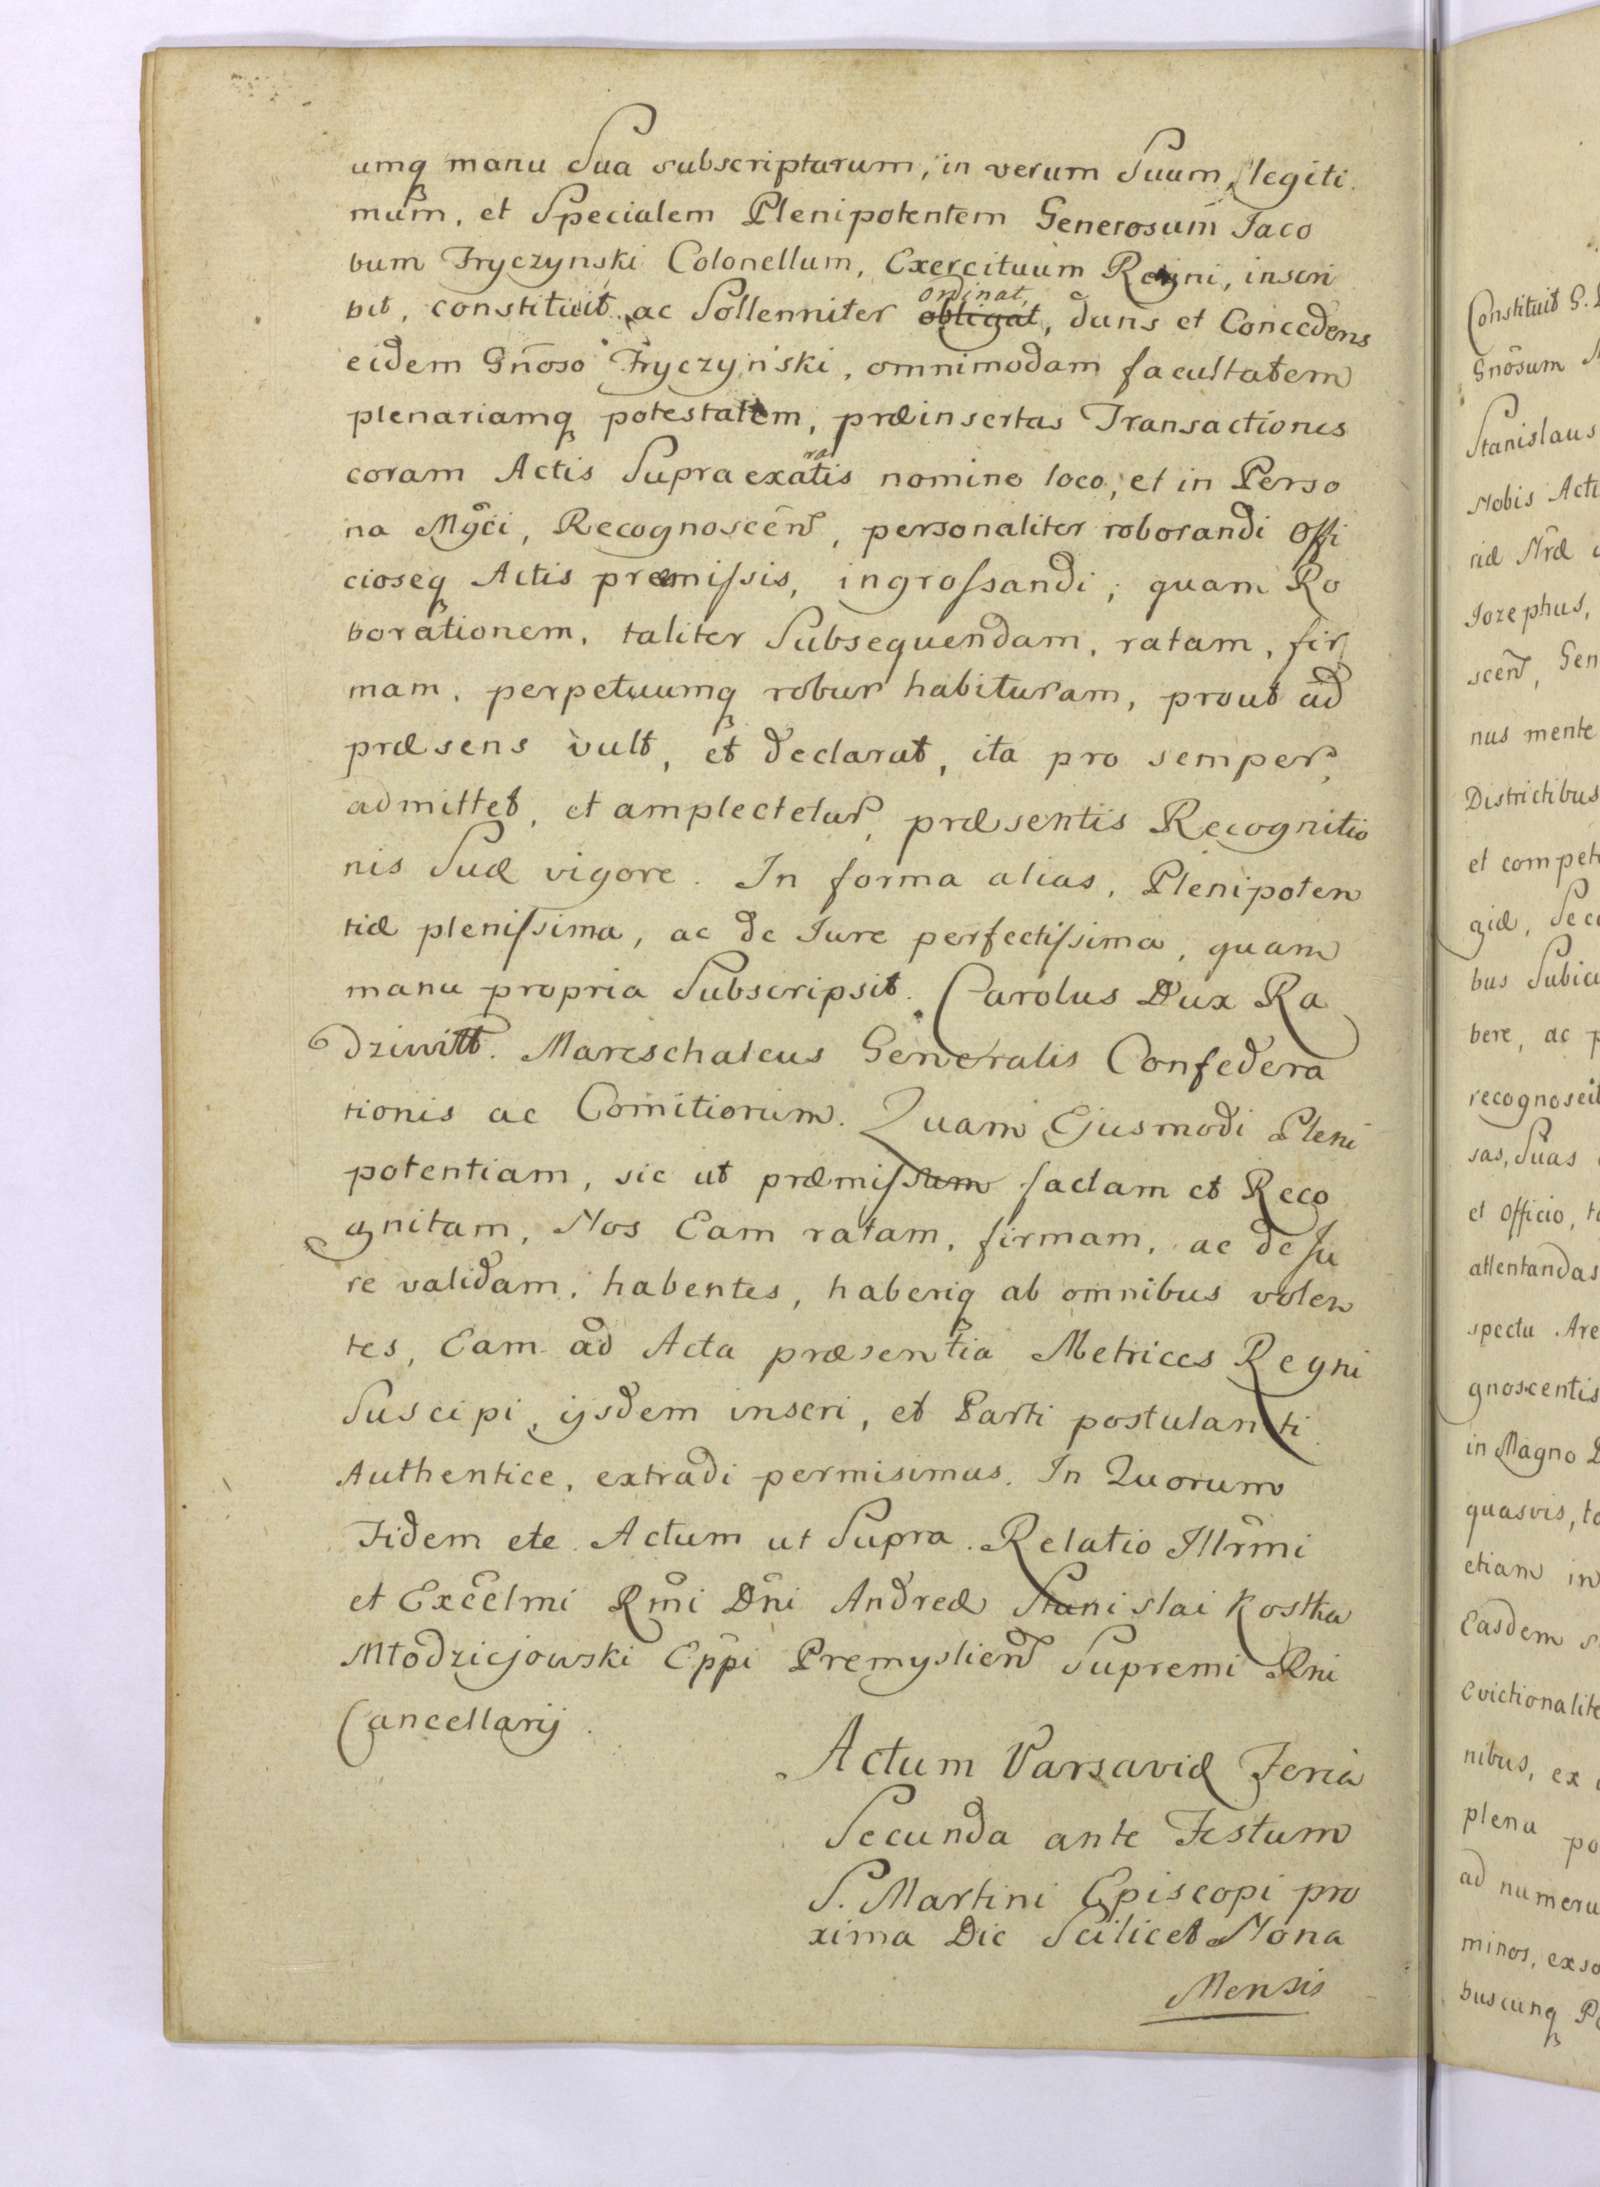 umq manu Sua subscriptarum, in verum Suum, legiti
mum, et Specialem Plenipotentem Generosum Jaco
bum Fryczynski Colonellum, Exercituum Regni, inscri
bit, constituit, ac Sollenniter obligat ordinat, dans et Concedens
eidem Gnoso Fryczyński, omnimodam facultatem
plenariamq potestatem, præinsertas Transactiones
coram Actis Supra exaratis nomine loco, et in Perso
na Mgci, Recognoscen, personaliter roborandi Offi
cioseq Actis præmissis, ingrossandi, quam Ro
borationem, taliter Subsequendam, ratam, fir
mam, perpetuumq robur habituram, prout ad
præsens vult, et declarat, ita pro semper,
admittet, et amplectetur, præsentis Recognitio
nis Suæ vigore. In forma alias, Plenipoten
tiæ plenissima, ac de Jure perfectissima, quam
manu propria Subscripsit. Carolus Dux Ra
dziwiłł. Mareschalcus Generalis Confedera
tionis ac Comitiorum. Quam Ejusmodi Pleni
potentiam, sic ut præmissum factam et Reco
gnitam, Nos Eam ratam, firmam, ac de Ju
re validam, habentes, haberiq ab omnibus volen
tes, Eam ad Acta præsentia Metrices Regni
Suscipi, ijsdem inseri, et Parti postulanti
Authentice, extradi permisimus. In Quorum
Fidem etc. Actum ut Supra. Relatio Illrmi
et Excelmi Rmi Dni Andreæ Stanislai Kostka
Młodziejowski Eppi Premyslien Supremi Rni
Cancellarij.
Actum Varsaviæ Feria
Secunda ante Festum
S. Martini Episcopi pro
xima Die Scilicet Nona
Mensis
Constituit G.
Gnosum
Stanislaus
Nobis
riæ Nræ
Jozephus,
scen, Gen
nus mente
Districtibus
et compet
giæ,
bus
bere, ac
recognoscit
sas, Suas
et Officio,
attentandas
spectu
gnoscentis
in Magno
quasvis,
etiam in
Easdem
evictionalite
nibus, ex
plena po
ad numeru
minos,
buscunq